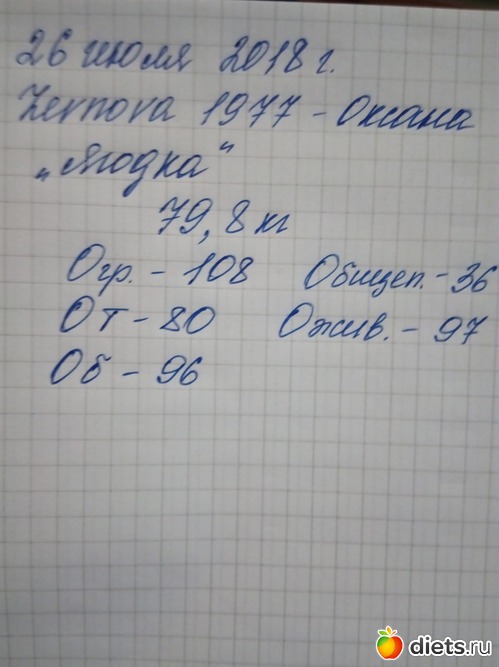 26 июля 2018 г.
Zernova 1977 - Оксана
„Ягодка"
79,8 кг
Огр. - 108 Общеп. - 36
ОТ - 80 Ожив. - 97
Об - 96
diets.ru